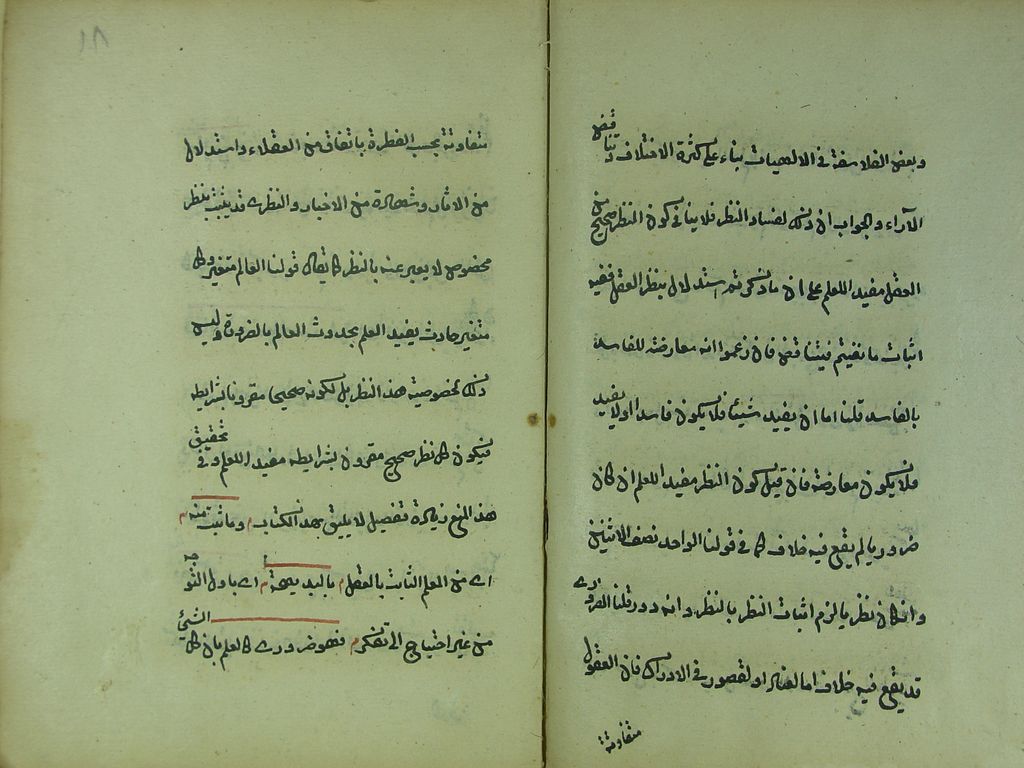 وبعض الفلاسفة في الالهيات بناء على كثرة الاختلاف وتناقض
الآراء والجواب ان ذلك لفساد النظر فلا ينافي كون النظر صحيح من
العقل مفيدا للعلم على ان ما ذكرتم استدلال بنظر العقل ففيه
اثبات ما نفيتم فيتناقض فان زعموا انه معارضة للفاسد
بالفاسد قلنا اما ان يفيد شيئا فلا يكون فاسدا اولا يفيد
فلا يكون معارضة فان قيل كون النظر مفيدا للعلم ان كان
ضروريا لم يقع فيه خلاف كما في قولنا الواحد نصف الاثنين
وان كان نظريا لزم اثبات النظر بالنظر وانه دور قلنا الضروري
قد يقع فيه خلاف اما لعناد او لقصور في الادراك فان العقول
متفاوتة
١٨
متفاوتة بحسب الفطرة باتفاق من العقلاء واستدلال
من الاثار وشهادة من الاخبار والنظري قد يثبت بنظر
مخصوص لا يعبر عنه بالنظر كما يقال قولنا العالم متغير وكل
متغير حادث يفيد العلم بحدوث العالم بالضرورة وليس
ذلك بخصوصية هذا النظر بل لكونه صحيحا مقرونا بشرايطه
فيكون كل نظر صحيح مقرون بشرايطه مفيدا للعلم وفي تحقيق
هذا المنع زيادة تفصيل لا يليق بهذا الكتاب وما ثبت منه
اي من العلم الثابت بالعقل بالبديهة اي باول التوجه
من غير احتياج الى تفكر فهو ضروري كالعلم بان كل الشئ